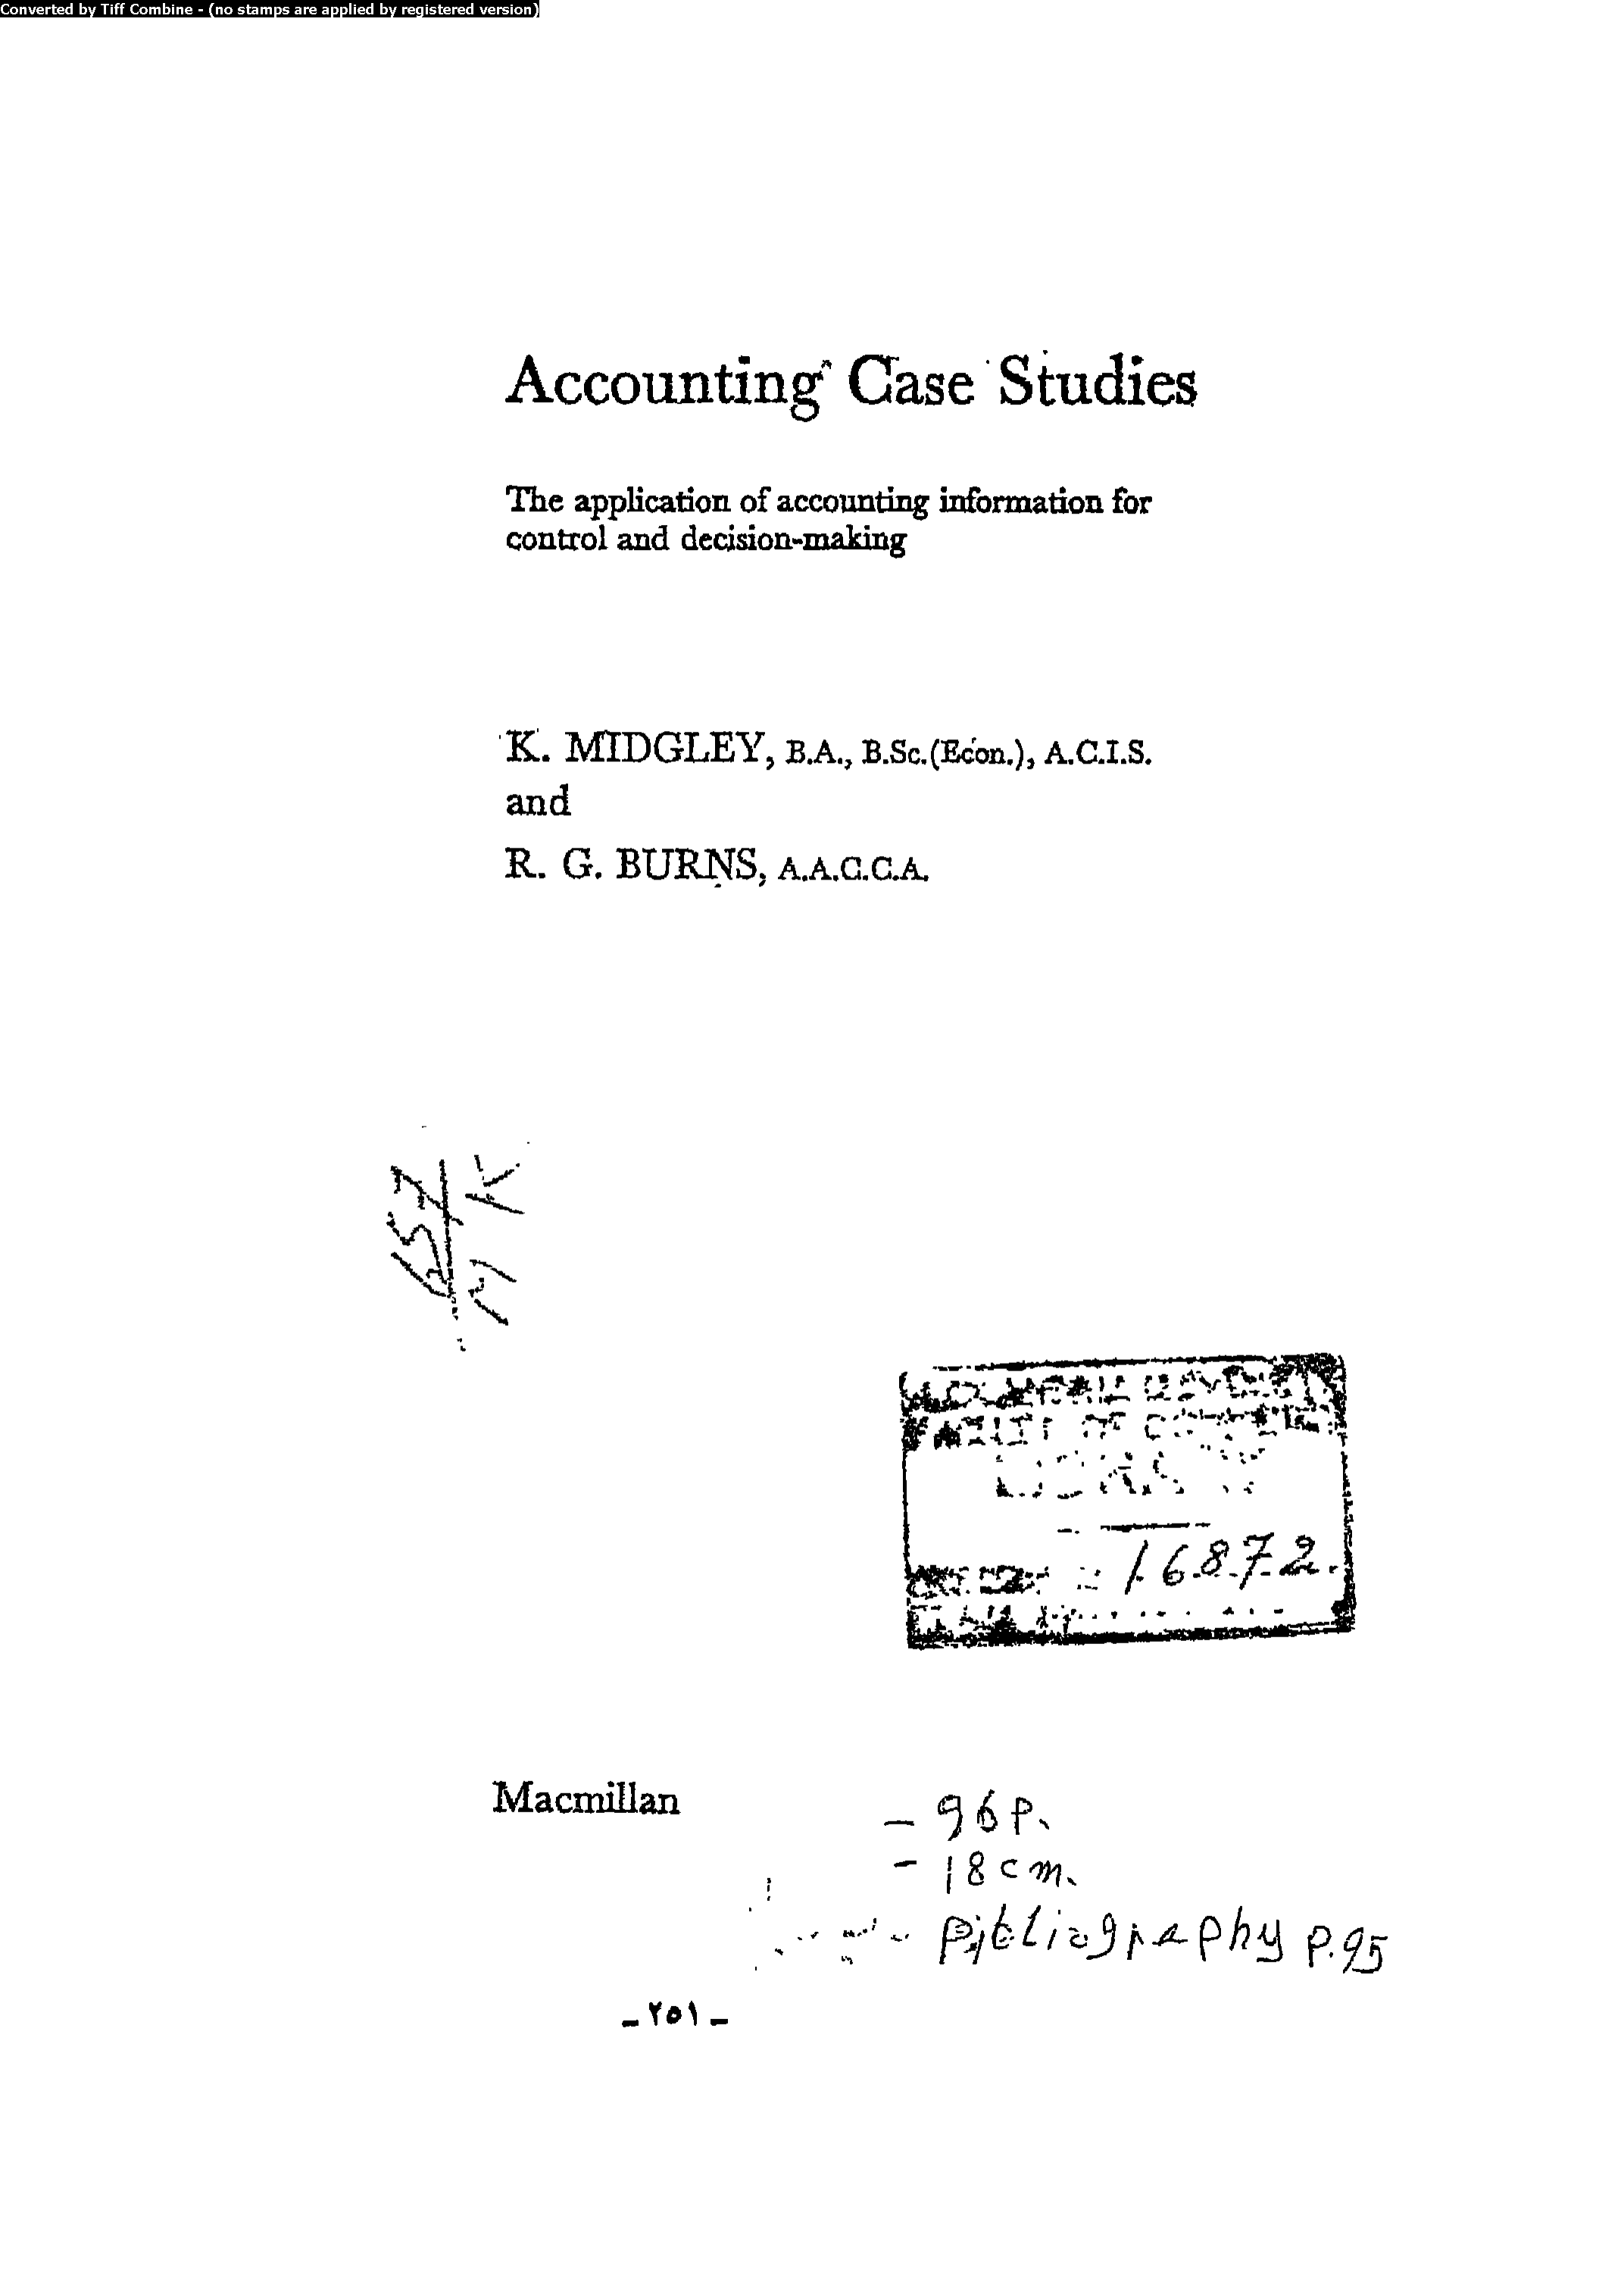 Converted by Tiff Combine - (no stamps are applied by registered version)
Accounting Case Studies
The application of accounting information for
control and decision-making
K. MIDGLEY, B.A., B.Sc.(Econ.), A.C.I.S.
and
R. G. BURNS, A.A.C.C.A.
657
M K
OF
16872
Macmillan
- 96 P.
- 18 cm.
- Bibliography P. 95
- ٢٥١ -